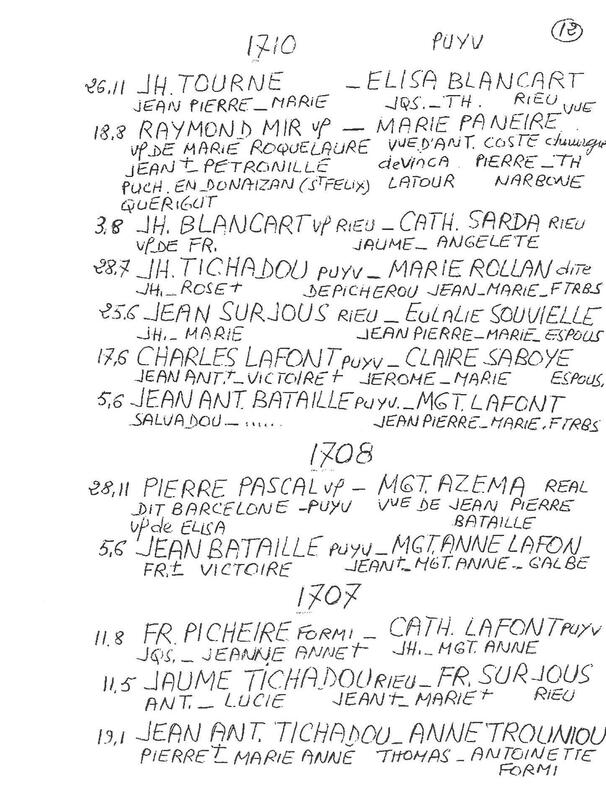 1710 PUYV 12
26.11 JH. TOURNE _ ELISA BLANCART
JEAN PIERRE _ MARIE JQS. _ TH. RIEU VUE
18.8 RAYMOND MIR vp _ MARIE PANEIRE
vp DE MARIE ROQUELAURE VUE D'ANT. COSTE chirurgien
JEAN + PETRONILLE de VINCA PIERRE _ TH
PUCH. EN DONAIZAN (ST FELIX) LATOUR NARBONE
QUERIGUT
3.8 JH. BLANCART vp RIEU _ CATH. SARDA RIEU
vp DE FR. JAUME _ ANGELETE
28.7 JH. TICHADOU PUYV _ MARIE ROLLAN dite
JH. _ ROSE + DEPICHEROU JEAN _ MARIE _ FTRBS
25.6 JEAN SURJOUS RIEU _ EULALIE SOUVIELLE
JH. _ MARIE JEAN PIERRE _ MARIE ESPOUS
17.6 CHARLES LAFONT PUYV _ CLAIRE SABOYE
JEAN ANT. + _ VICTOIRE + JEROME _ MARIE ESPOUS.
5.6 JEAN ANT. BATAILLE PUYV. _ MGT. LAFONT
SALVADOU _ ...... JEAN PIERRE _ MARIE. FTRBS
1708
28.11 PIERRE PASCAL vp _ MGT. AZEMA REAL
DIT BARCELONE _ PUYV VUE DE JEAN PIERRE
vp de ELISA BATAILLE
5.6 JEAN BATAILLE PUYV _ MGT. ANNE LAFON
FR. + VICTOIRE JEAN + _ MGT. ANNE _ GALBE
1707
11.8 FR. PICHEIRE FORMI _ CATH. LAFONT PUYV
JQS. _ JEANNE ANNE + JH. _ MGT. ANNE
11.5 JAUME TICHADOU RIEU _ FR. SURJOUS
ANT. _ LUCIE JEAN + MARIE + RIEU
19.1 JEAN ANT. TICHADOU _ ANNE TROUNIOU
PIERRE + MARIE ANNE THOMAS _ ANTOINETTE
FORMI